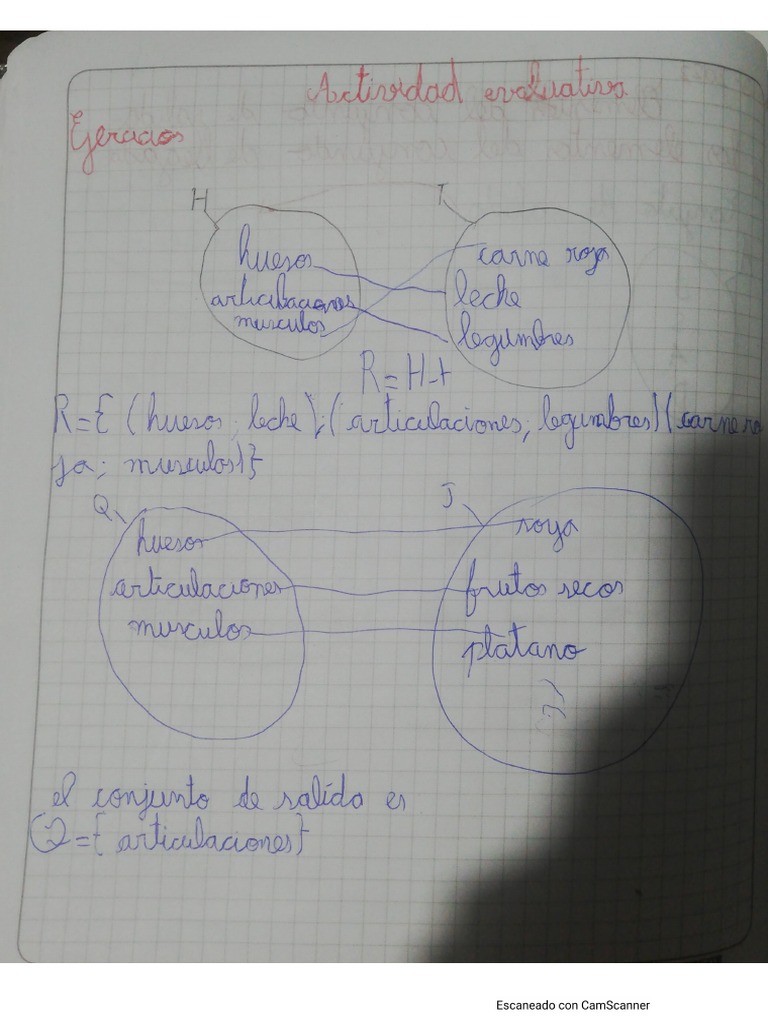 Actividad evaluativa
Ejercicios
H
T
huesos
articulaciones
musculos
carne roja
leche
legumbres
R=H→t
R={(huesos; leche);(articulaciones; legumbres)(carne ro
ja; musculos)}
Q
J
huesos
articulaciones
musculos
soya
frutos secos
platano
el conjunto de salida es
Q={articulaciones}
Escaneado con CamScanner